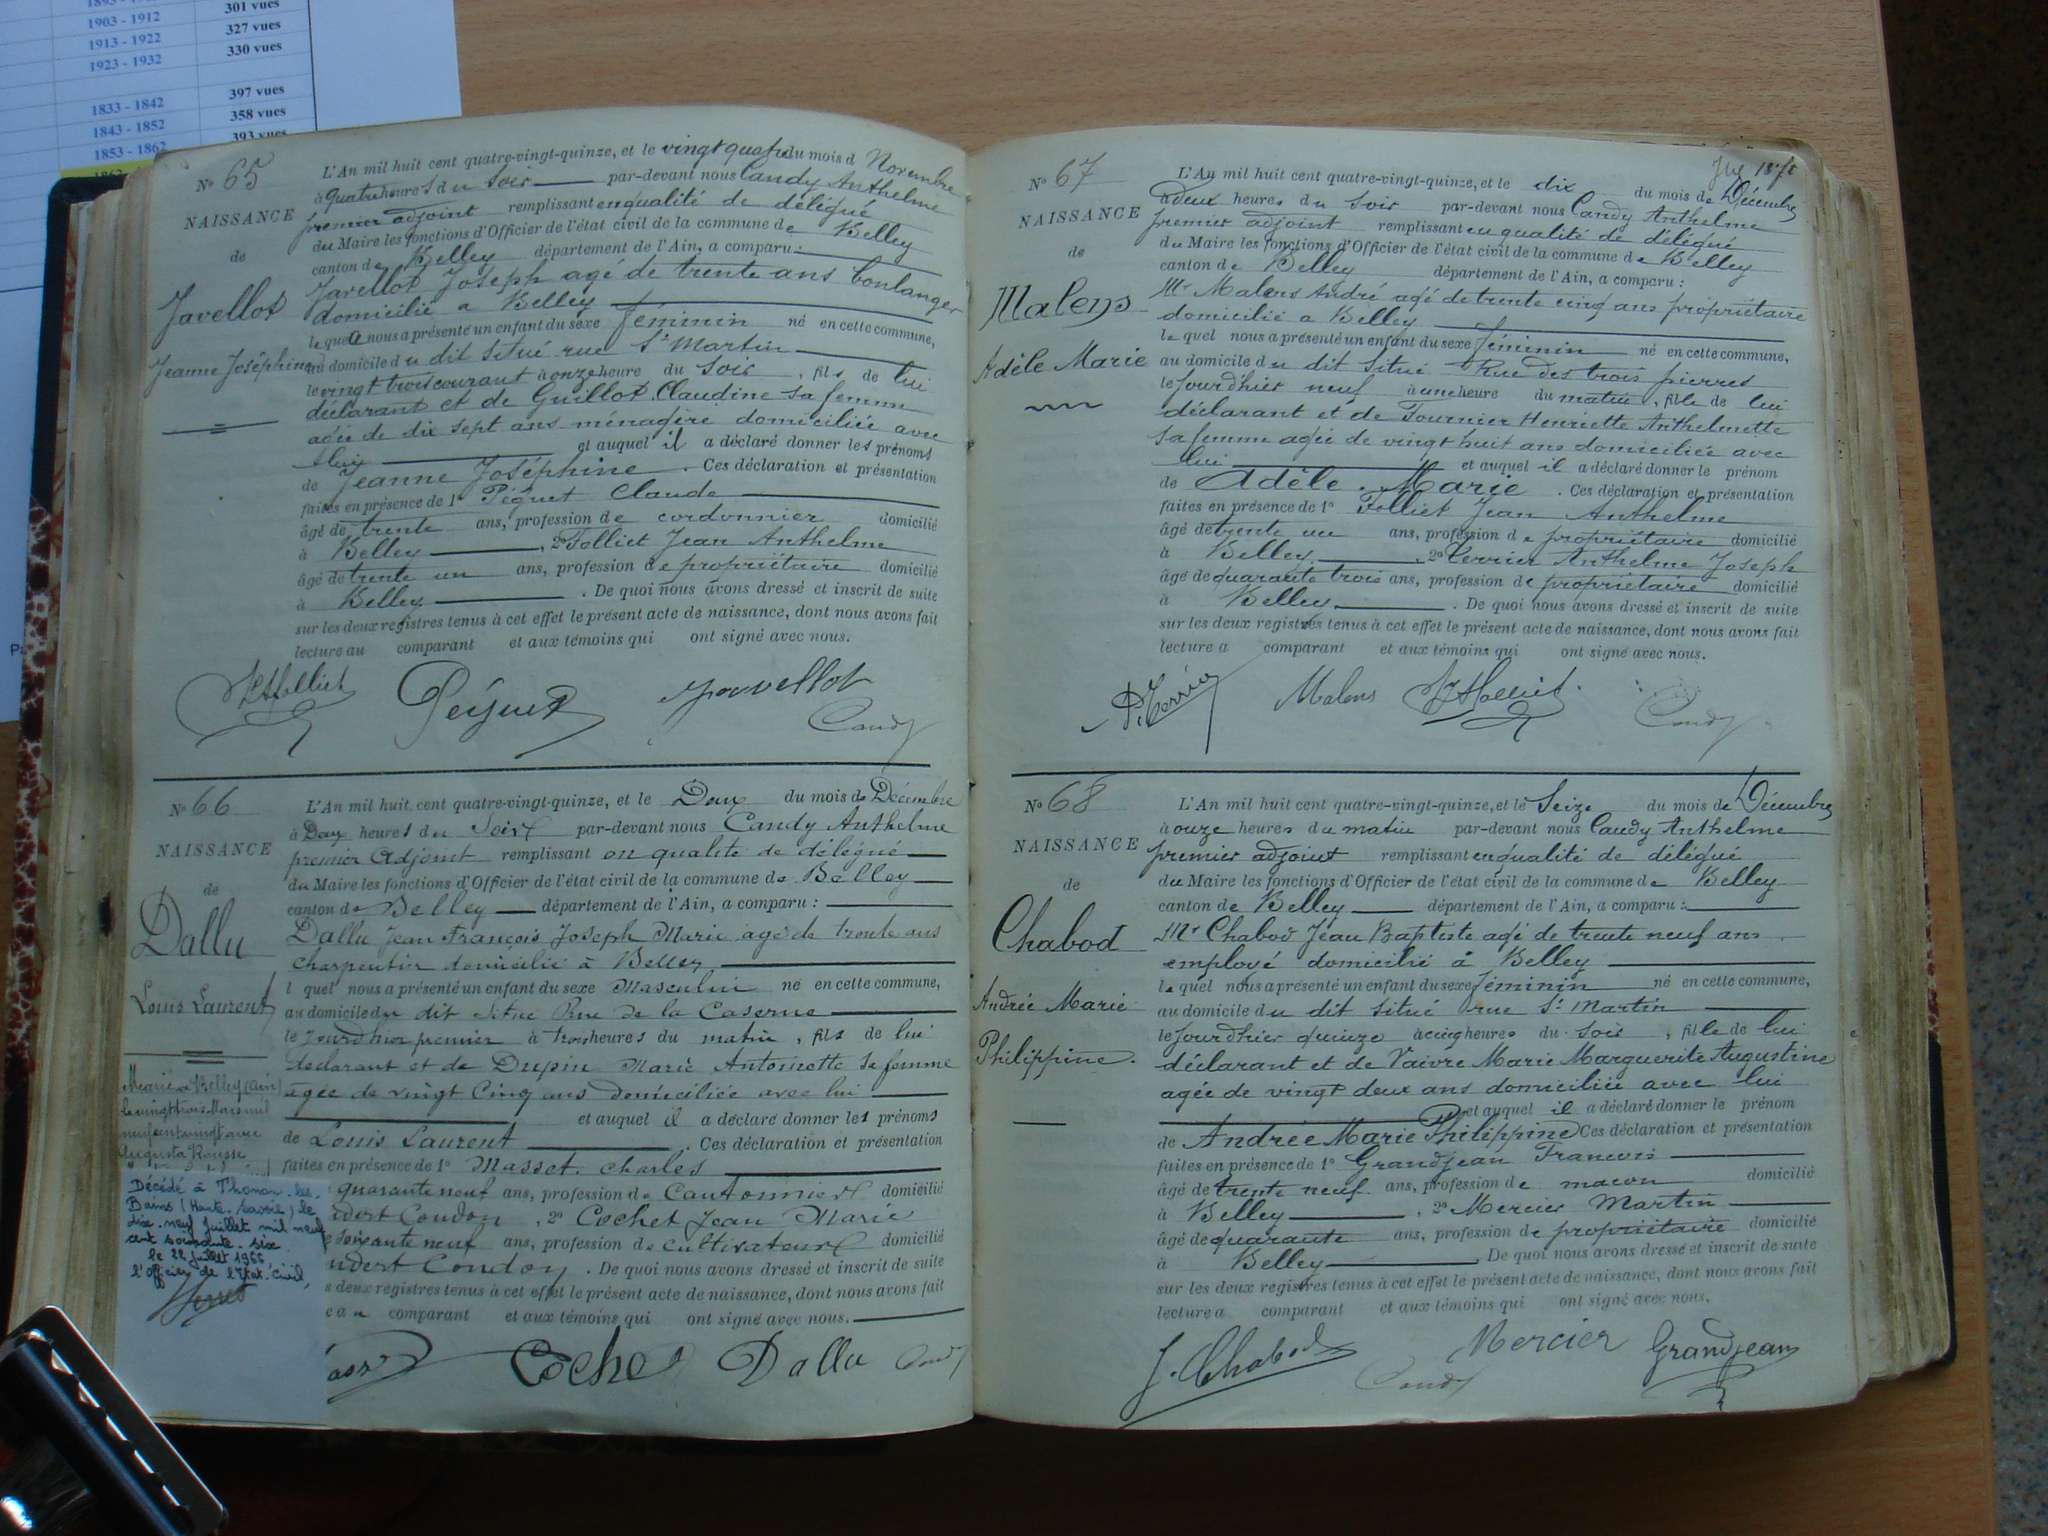 301 vues
1903 - 1912 327 vues
1913 - 1922 330 vues
1923 - 1932
397 vues
1833 - 1842 358 vues
1843 - 1852 393 vues
1853 - 1862
No 65
NAISSANCE
de
Javellot
Jeanne Joséphine
L'An mil huit cent quatre-vingt-quinze, et le vingt quatre du mois d Novembre
à quatre heures du soir par-devant nous Candy Anthelme
premier adjoint remplissant en qualité de délégué
du Maire les fonctions d'Officier de l'état civil de la commune de Belley
canton de Belley département de l'Ain, a comparu :
Javellot Joseph agé de trente ans boulanger
domicilié a Belley
lequel nous a présenté un enfant du sexe féminin né en cette commune,
au domicile du dit situé rue St Martin
le vingt trois courant à onze heure du soir, fils de lui
déclarant et de Guillot Claudine sa femme
agée de dix sept ans ménagère domiciliée avec
et auquel il a déclaré donner les prénoms
de Jeanne Joséphine. Ces déclaration et présentation
faites en présence de 1° Péguet Claude
âgé de trente ans, profession de cordonnier domicilié
à Belley, 2° Folliet Jean Anthelme
âgé de trente un ans, profession de propriétaire domicilié
à Belley. De quoi nous avons dressé et inscrit de suite
sur les deux registres tenus à cet effet le présent acte de naissance, dont nous avons fait
lecture au comparant et aux témoins qui ont signé avec nous.
Péguet Javellot
Candy
No 66
NAISSANCE
de
Dallu
Louis Laurent
Marié à Belley (Ain)
le vingt trois Mars mil
neuf cent vingt avec
Augusta Rousse
Décédé à Thonon-les-
Bains (Haute-Savoie) le
dix-neuf juillet mil neuf
cent soixante-six
le 22 juillet 1966
l'Officier de l'Etat-Civil,
L'An mil huit cent quatre-vingt-quinze, et le Deux du mois de Décembre
à Deux heures du Soir par-devant nous Candy Anthelme
premier Adjoint remplissant en qualité de délégué
du Maire les fonctions d'Officier de l'état civil de la commune de Belley
canton de Belley département de l'Ain, a comparu :
Dallu Jean François Joseph Marie agé de trente ans
charpentier domicilié à Belley
l quel nous a présenté un enfant du sexe Masculin né en cette commune,
au domicile du dit situé Rue de la Caserne
le jourdhier premier à trois heures du matin, fils de lui
declarant et de Dupin Marie Antoinette sa femme
agée de vingt Cinq ans domiciliée avec lui
et auquel il a déclaré donner les prénoms
de Louis Laurent. Ces déclaration et présentation
faites en présence de 1° Masset Charles
quarante neuf ans, profession de Cantonnier domicilié
dert Coudon, 2° Cochet Jean Marie
e soixante neuf ans, profession de cultivateur domicilié
ndert Coudon. De quoi nous avons dressé et inscrit de suite
s deux registres tenus à cet effet le présent acte de naissance, dont nous avons fait
e au comparant et aux témoins qui ont signé avec nous.
Cochet Dallu Candy
No 67
NAISSANCE
de
Malens
Adèle Marie
L'An mil huit cent quatre-vingt-quinze, et le dix du mois de Décembre
à deux heures du soir par-devant nous Candy Anthelme
premier adjoint remplissant en qualité de délégué
du Maire les fonctions d'Officier de l'état civil de la commune de Belley
canton de Belley département de l'Ain, a comparu :
Mr Malens André agé de trente cinq ans propriétaire
domicilié a Belley
le quel nous a présenté un enfant du sexe féminin né en cette commune,
au domicile du dit situé Rue des trois pierres
le jourdhier neuf à une heure du matin, fille de lui
déclarant et de Fournier Henriette Anthelmette
sa femme agée de vingt huit ans domiciliée avec
lui et auquel il a déclaré donner le prénom
de Adèle Marie. Ces déclaration et présentation
faites en présence de 1° Folliet Jean Anthelme
âgé de trente un ans, profession de propriétaire domicilié
à Belley, 2° Perrier Anthelme Joseph
âgé de quarante trois ans, profession de propriétaire domicilié
à Belley. De quoi nous avons dressé et inscrit de suite
sur les deux registres tenus à cet effet le présent acte de naissance, dont nous avons fait
lecture a comparant et aux témoins qui ont signé avec nous.
Malens
Candy
No 68
NAISSANCE
de
Chabod
Andrée Marie
Philippine.
L'An mil huit cent quatre-vingt-quinze, et le Seize du mois de Décembre
à onze heures du matin par-devant nous Candy Anthelme
premier adjoint remplissant en qualité de délégué
du Maire les fonctions d'Officier de l'état civil de la commune de Belley
canton de Belley département de l'Ain, a comparu :
Mr Chabod Jean Baptiste agé de trente neuf ans
employé domicilié à Belley
le quel nous a présenté un enfant du sexe féminin né en cette commune,
au domicile du dit situé rue St Martin
le jourdhier quinze à cinq heures du soir, fille de lui
déclarant et de Vaivre Marie Marguerite Augustine
agée de vingt deux ans domiciliée avec lui
et auquel il a déclaré donner le prénom
de Andrée Marie Philippine Ces déclaration et présentation
faites en présence de 1° Grandjean Francois
âgé de trente neuf ans, profession de macon domicilié
à Belley, 2° Mercier Martin
âgé de quarante ans, profession de propriétaire domicilié
à Belley De quoi nous avons dressé et inscrit de suite
sur les deux registres tenus à cet effet le présent acte de naissance, dont nous avons fait
lecture a comparant et aux témoins qui ont signé avec nous.
J. Chabod Mercier Grandjean
Candy